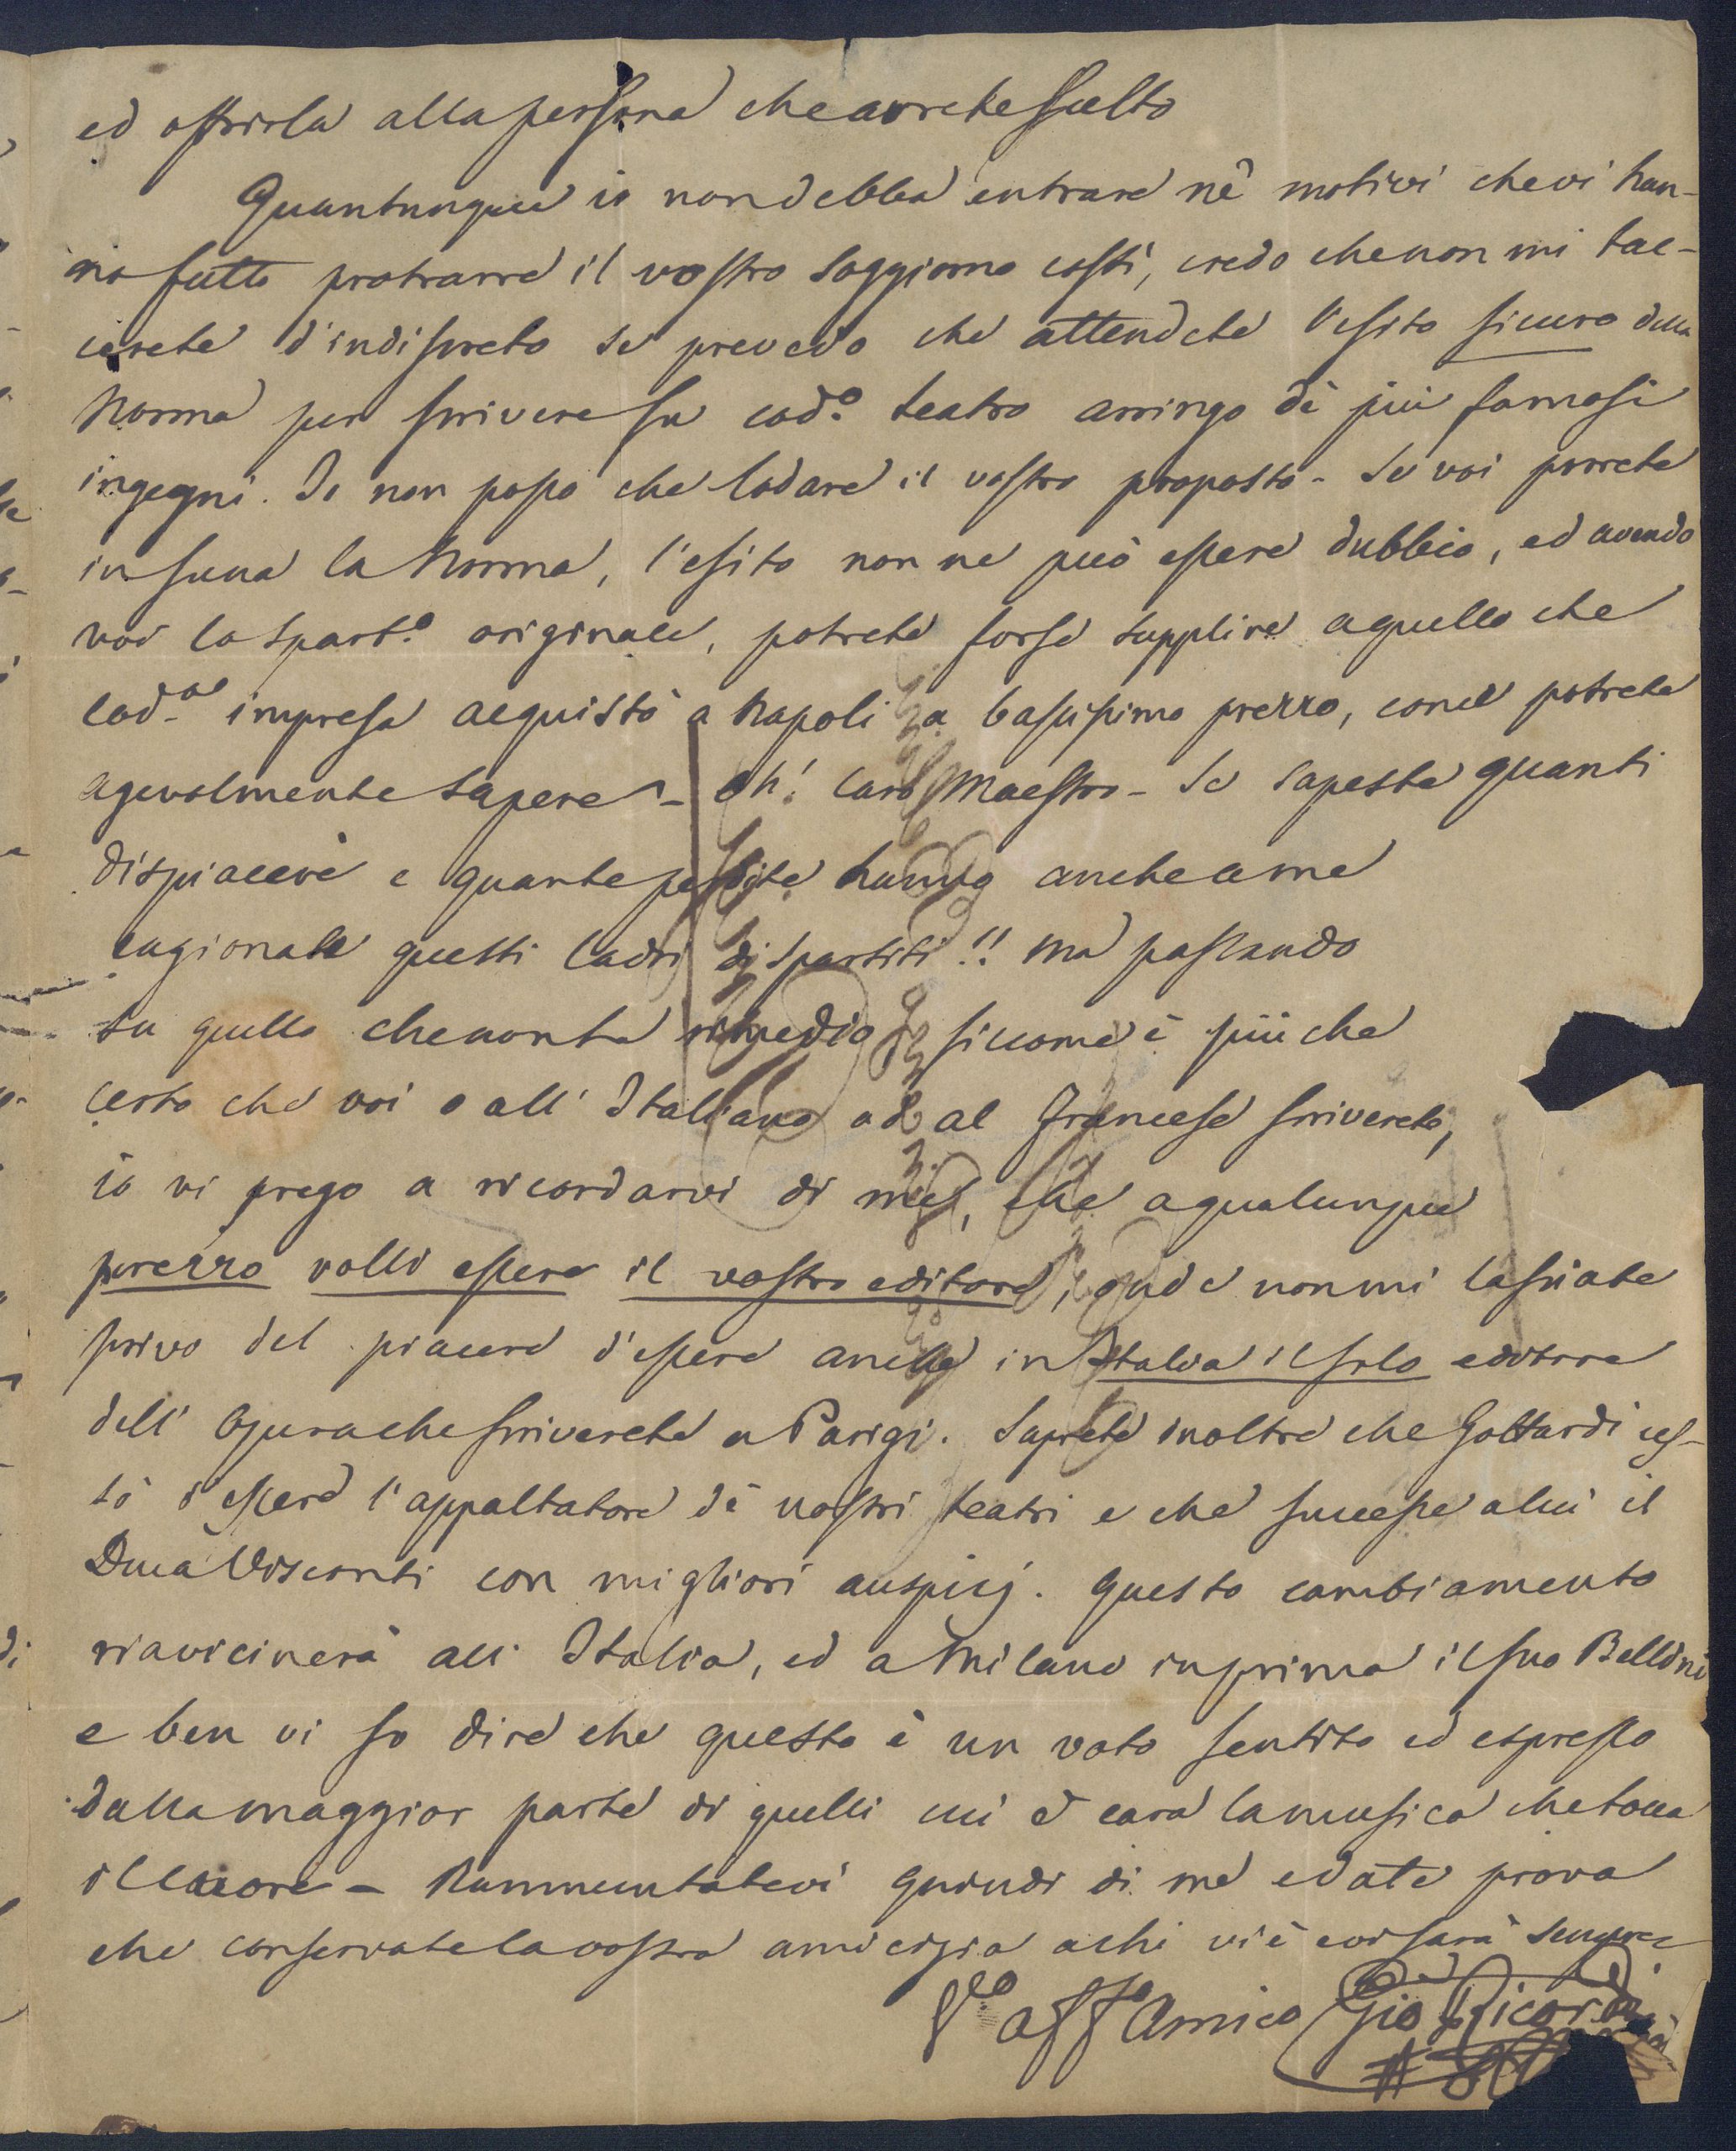 ed offrirla alla persona che avrete scelto
Quantunque io non debba entrare nè motivi che vi han-
no fatto protrarre il vostro soggiorno costì, credo che non mi tac-
cierete d'indiscreto se prevedo che attendete l'esito sicuro della
Norma per scrivere su cod.o teatro arringo dè più famosi
ingegni. Io non posso che lodare il vostro proposto - Se voi porrete
in scena la Norma, l'esito non ne può essere dubbio, ed avendo
voi lo spart.o originale, potrete forse supplire a quello che
cod.a impresa acquistò a Napoli a bassissimo prezzo, come potrete
agevolmente sapere - Oh! caro Maestro - Se sapeste quanti
dispiaceri e quante perdite hanno anche a me
cagionate questi ladri di spartiti!! Ma passando
su quello che non ha rimedio siccome è più che
certo che voi o all'Italiano od al Francese scriverete,
io vi prego a ricordarvi di me, che a qualunque
prezzo volli essere il vostro editore, onde non mi lasciate
privo del piacere d'essere anche in Italia il solo editore
dell'Opera che scriverete a Parigi. Saprete inoltre che Gottardi ces-
sò d'essere l'appaltatore dè nostri teatri e che successe a lui il
Duca Visconti con migliori auspicj. Questo cambiamento
riavvicinerà all'Italia, ed a Milano in prima il suo Bellini
e ben vi so dire che questo è un voto sentito ed espresso
dalla maggior parte di quelli cui è cara la musica che tocca
il cuore - Rammentatevi quindi di me e date prova
che conservate la vostra amicizia a chi vi è e vi sarà sempre
aff.o Amico Gio Ricordi